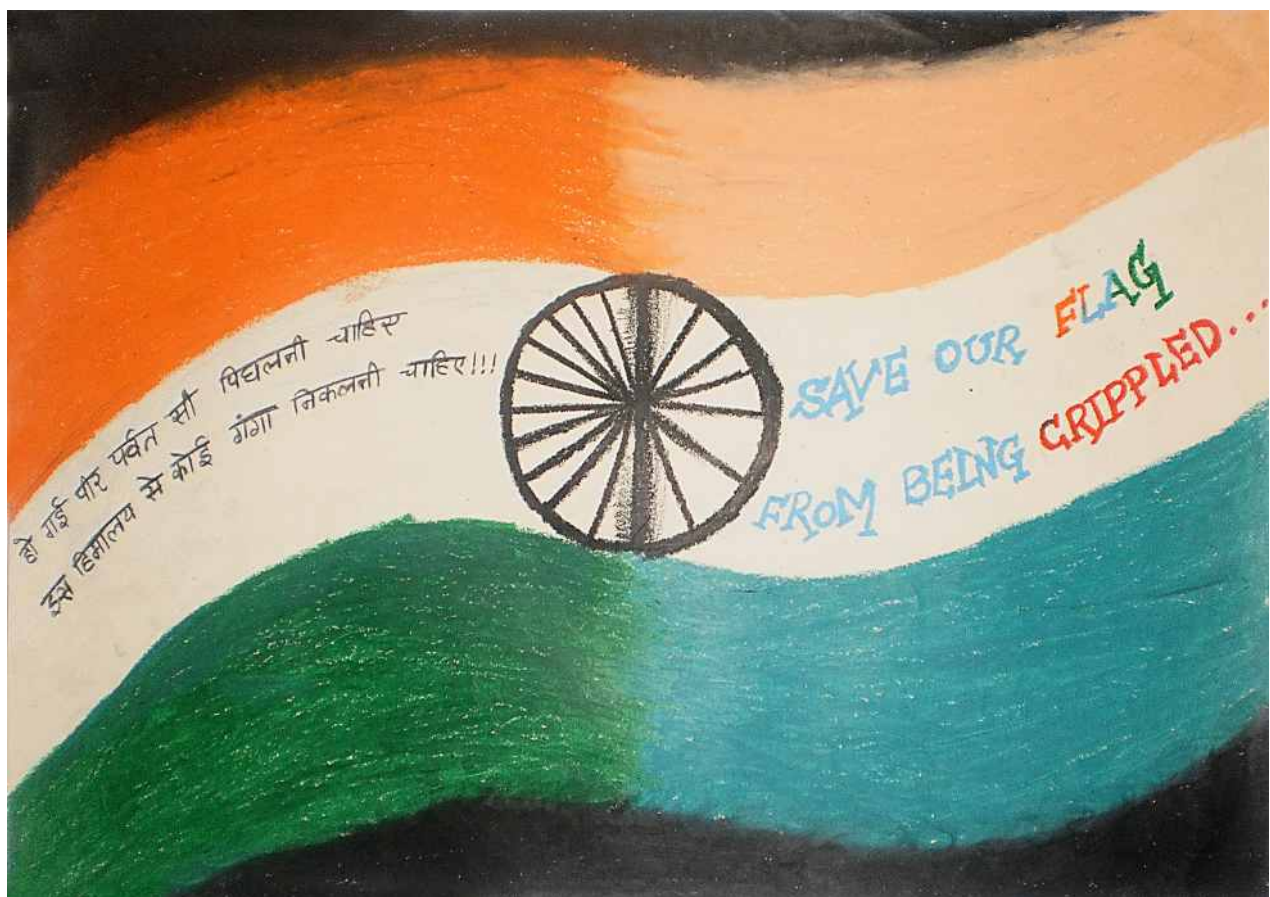 हो गई पीर पर्वत सी पिघलनी चाहिए
इस हिमालय से कोई गंगा निकलनी चाहिए!!!
SAVE OUR FLAG
FROM BEING CRIPPLED...